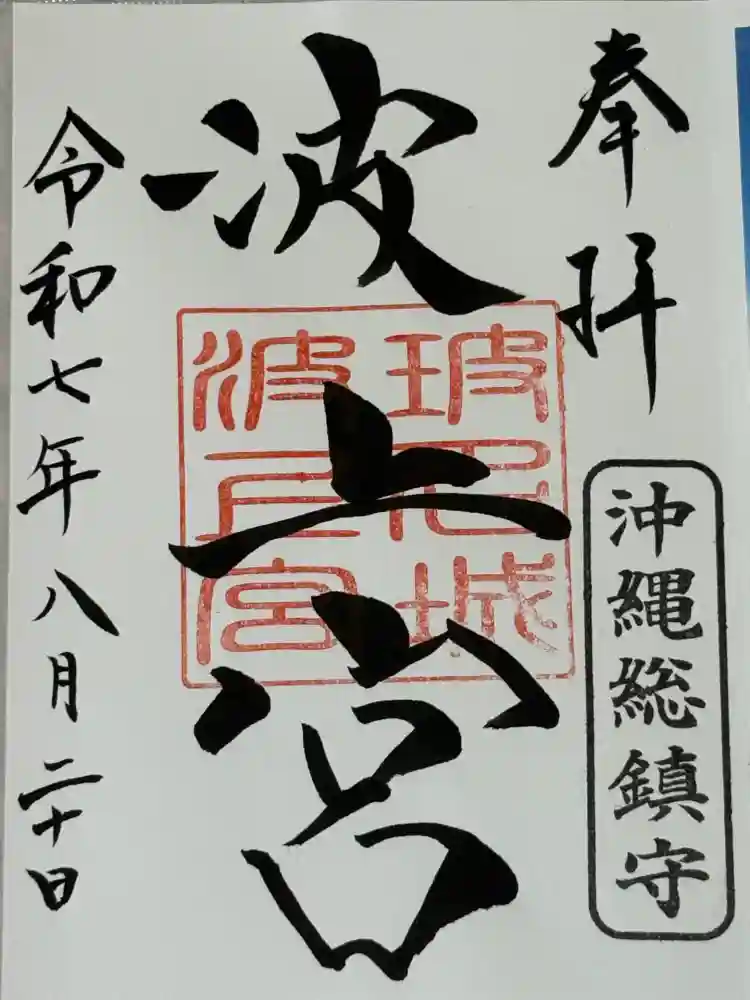 奉拝
沖縄総鎮守
波上宮
玻名城
波上宮
令和七年八月二十日